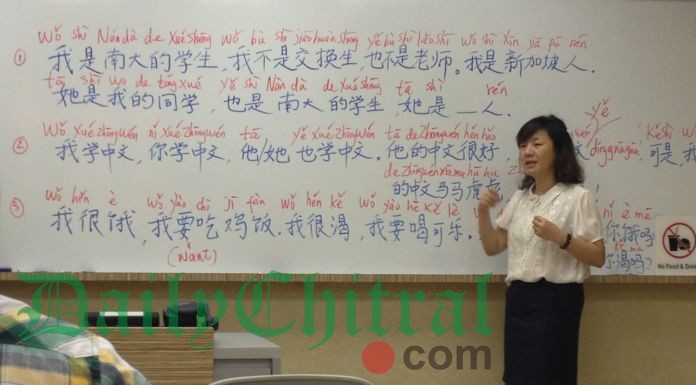 Wǒ shì Nándà de xuéshēng wǒ bù shì jiāohuànshēng yě bù shì lǎoshī wǒ shì Xīn jiā pō rén
① 我是南大的学生，我不是交换生，也不是老师。我是新加坡人．
tā shì wǒ de tóng xué yě shì Nán dà de xuéshēng tā shì rén
她是我的同学，也是南大的学生，她是__人．
Wǒ xué zhōngwén nǐ xué zhōngwén tā yě xué zhōngwén tā de zhōngwén hěn hǎo yě kě shì wǒ
② 我学中文，你学中文，他/她也学中文。他的中文很好， 可是，我
de zhōngwén mǎ mǎ hū hū
的中文马马虎虎
Wǒ hěn è wǒ yào chī jī fàn wǒ hěn kě wǒ yào hē kě lè nǐ è mā
③ 我很饿，我要吃鸡饭．我很渴，我要喝可乐． 你饿吗
(want)
渴吗?
No Food & Drink
DailyChitral
.com